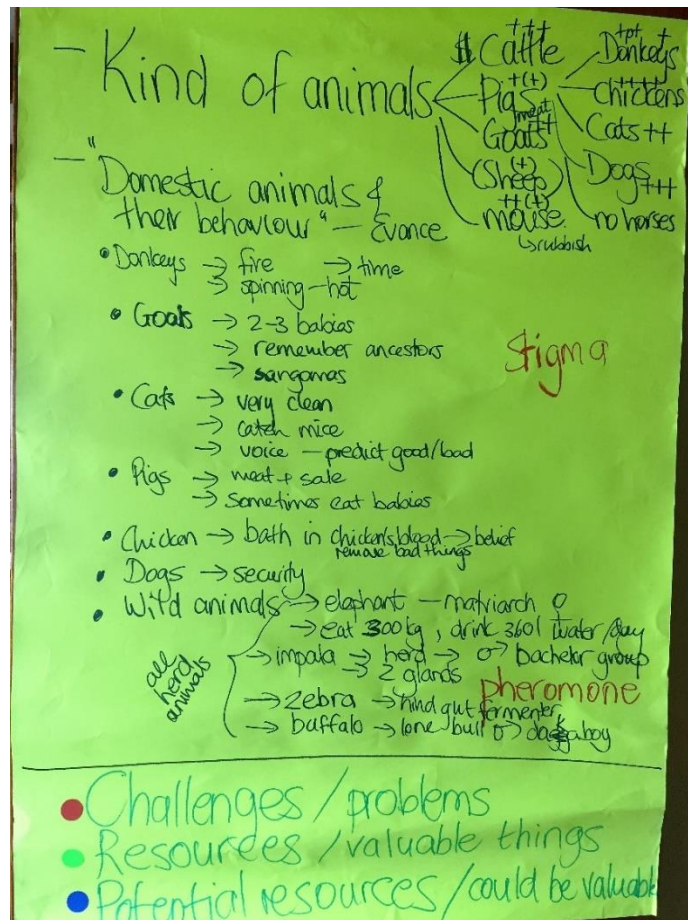 +++
$ Cattle
- Kind of animals
+(+)
Pigs
meat
Goats ++
(+)
(Sheep)
++(+)
mouse
↳ rubbish
+pt +
Donkeys
++++
chickens
Cats ++
Dogs
+++
no horses
- "Domestic animals &
their behaviour" - Evance
• Donkeys → fire → time
→ spinning - hot
• Goats → 2-3 babies
→ remember ancestors
→ sangomas
Stigma
• Cats → very clean
→ catch mice
→ voice - predict good/bad
• Pigs → meat + sale
→ Sometimes eat babies
• Chicken → bath in chicken's blood → belief
remove bad things
• Dogs → security
• Wild animals → elephant - matriarch ♀
→ eat 300kg, drink 360l water/day
all herd animals
→ impala → herd → ♂ bachelor group
→ 2 glands
pheromone
→ zebra → hind gut fermenter
→ buffalo → lone bull ♂ daggaboy
• Challenges / problems
• Resources / valuable things
• Potential resources / could be valuable